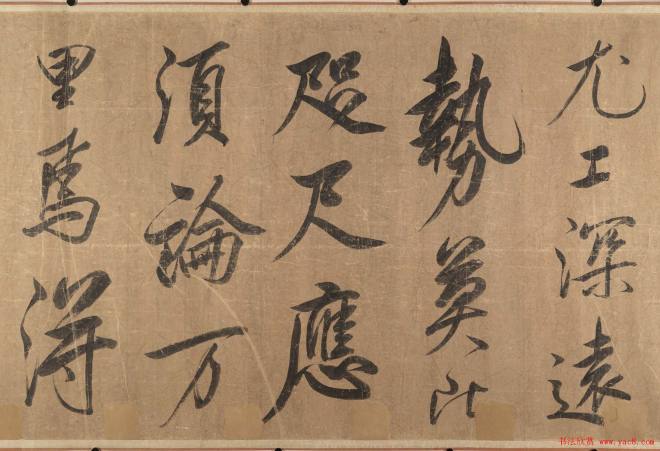 尤工深遠
勢莫比
咫尺應
須論万
里焉得
书法欣赏 www.yac8.com